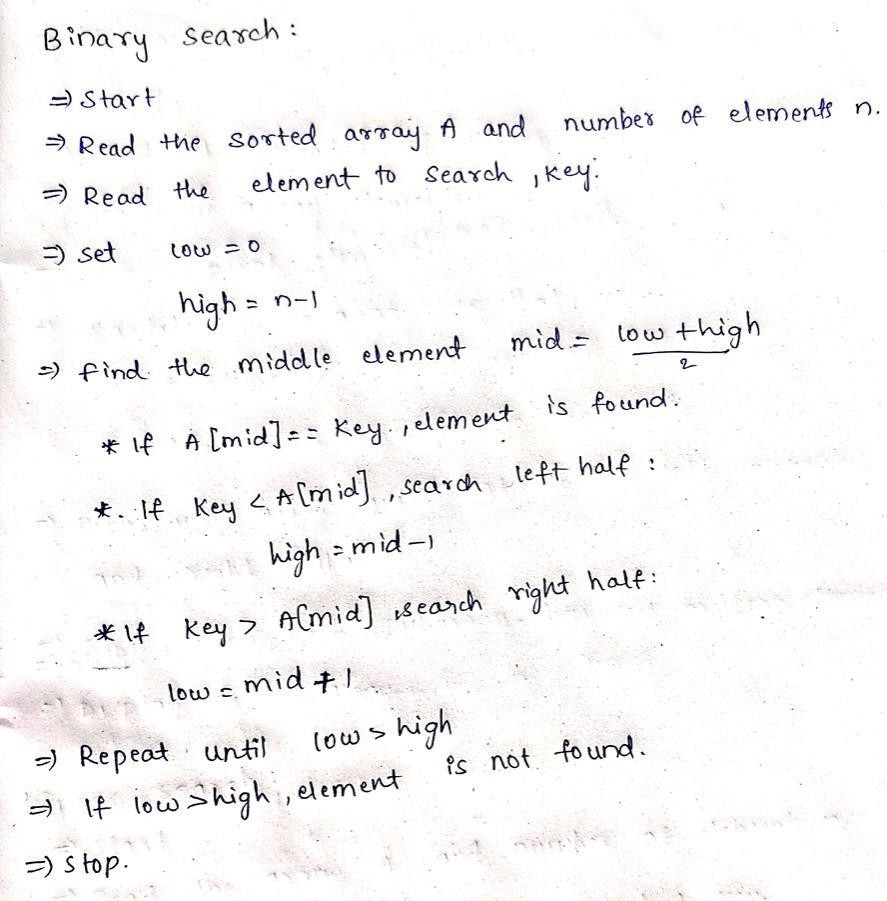 Binary search :
⇒ Start
⇒ Read the sorted array A and number of elements n.
⇒ Read the element to search , key.
⇒ set low = 0
high = n-1
⇒ find the middle element mid = (low + high)/2
* If A[mid] == Key , element is found.
*. If Key < A[mid] , search left half :
high = mid -1
* If Key > A[mid] , search right half :
low = mid + 1
⇒ Repeat until low > high
⇒ If low > high , element is not found.
⇒ stop.